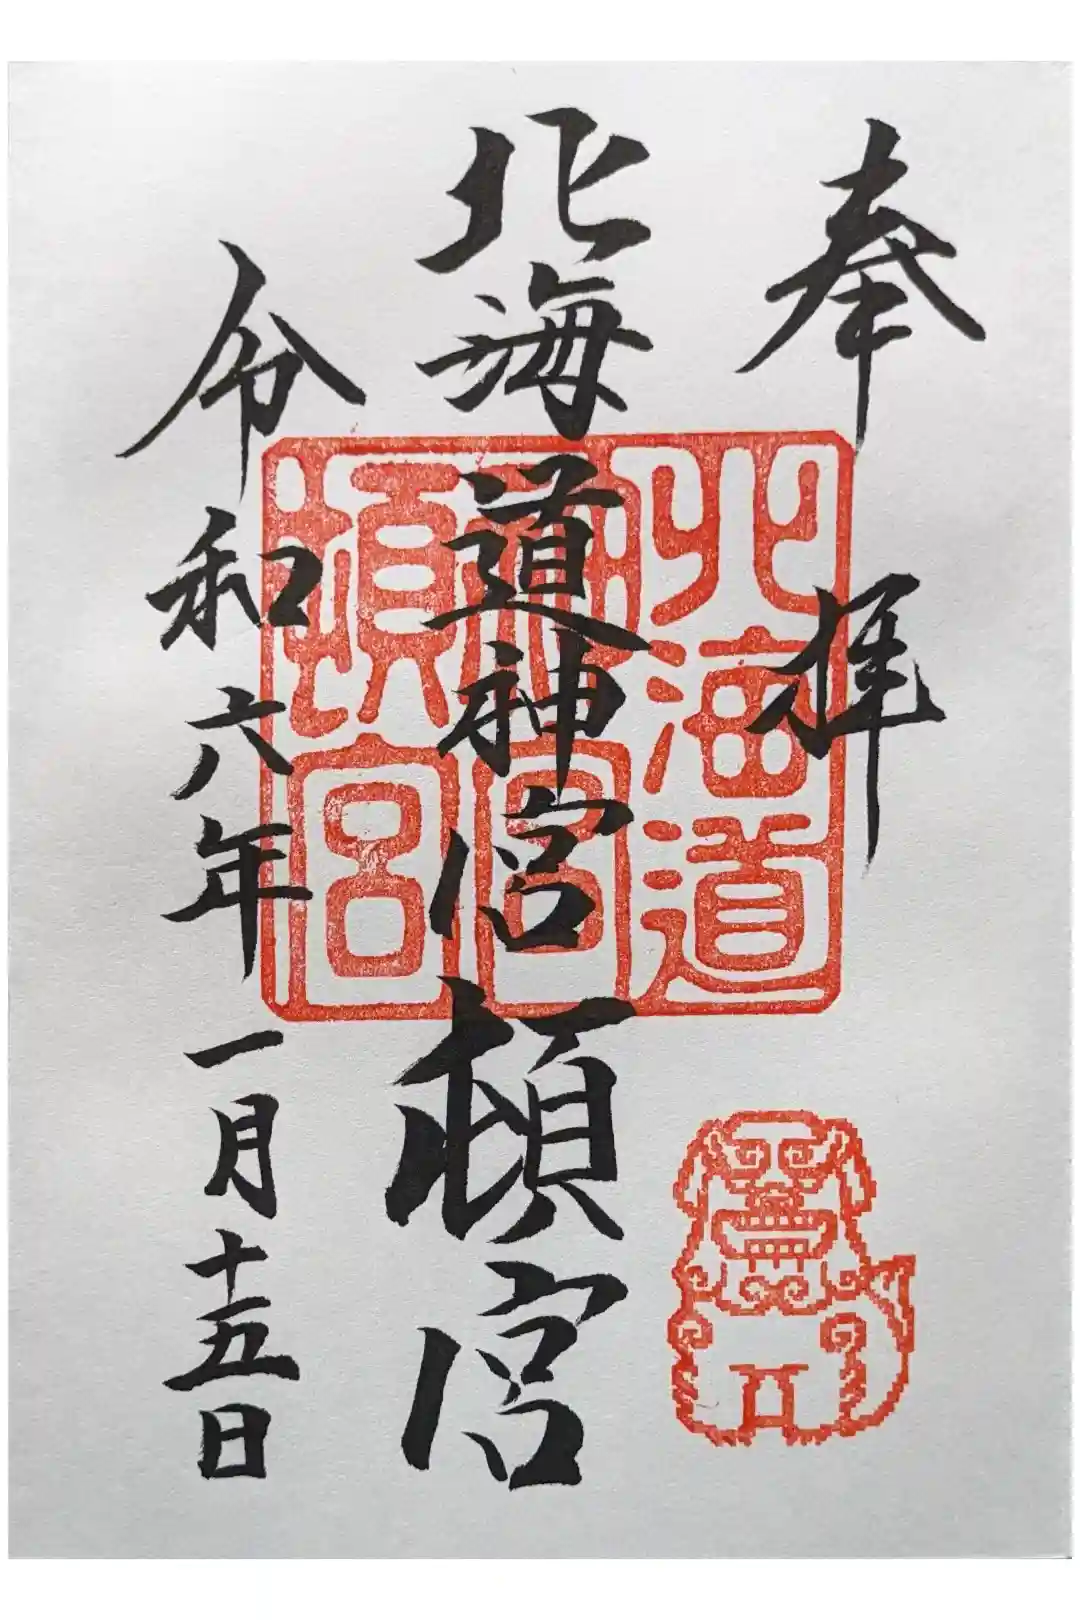 奉拝
北海道神宮頓宮
令和六年一月十五日
北海道
神宮
頓宮